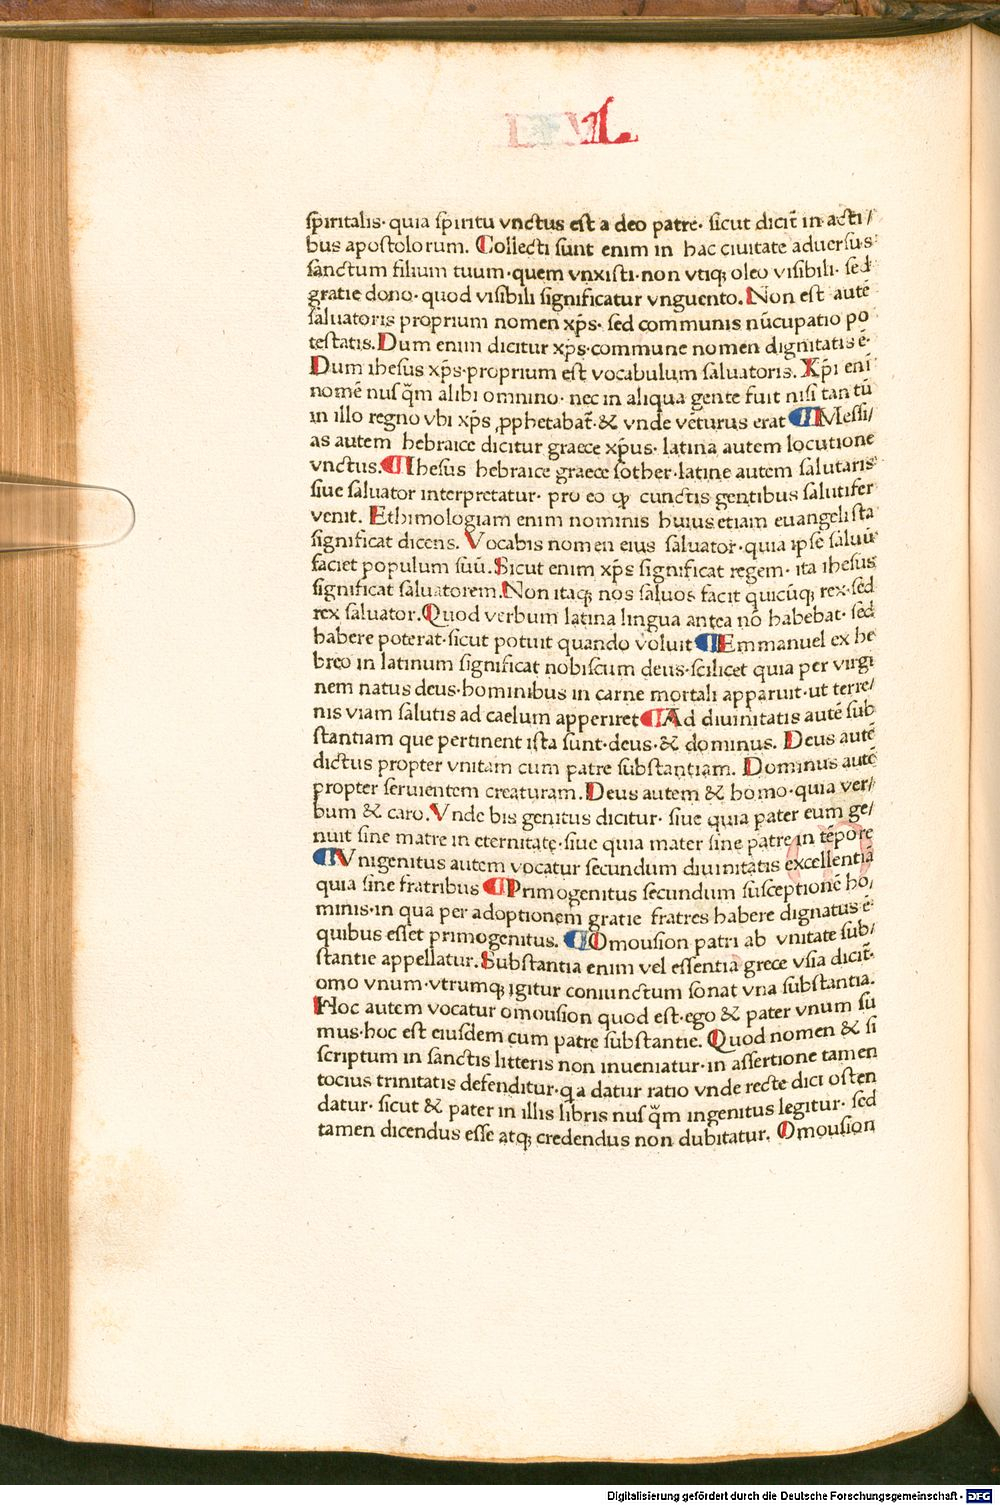 L
spiritalis· quia spiritu vnctus est a deo patre· sicut dicit̃ in acti/
bus apostolorum. Collecti sunt enim in hac ciuitate aduersus
sanctum filium tuum·quem vnxisti·non vtiq; oleo visibili· sed
gratie dono· quod visibili significatur vnguento. Non est autē
saluatoris proprium nomen xp̄s· sed communis nūcupatio po
testatis. Dum enim dicitur xp̄s·commune nomen dignitatis ē·
Dum ihesus xp̄s·proprium est vocabulum saluatoris. Xp̄i eni
nomē nusq̄m alibi omnino· nec in aliqua gente fuit nisi tantū
in illo regno vbi xp̄s ꝓphetabat̃·& vnde vēturus erat ¶ Messi/
as autem hebraice dicitur graece xp̄us· latina autem locutione
vnctus. ¶ Ihesus hebraice graece sother·latine autem salutaris
siue saluator interpretatur· pro eo ꝙ cunctis gentibus salutifer
venit. Ethimologiam enim nominis huius etiam euangelista
significat dicens. Vocabis nomen eius saluator·quia ipse saluū
faciet populum suū. Sicut enim xp̄s significat regem· ita ihesus
significat saluatorem. Non itaq; nos saluos facit quicūq; rex·sed
rex saluator. Quod verbum latina lingua antea nō habebat· sed
habere poterat·sicut potuit quando voluit ¶ Emmanuel ex he
breo in latinum significat nobiscum deus·scilicet quia per virgi
nem natus deus·hominibus in carne mortali apparuit·ut terre/
nis viam salutis ad caelum apperiret ¶ Ad diuinitatis autē sub
stantiam que pertinent ista sunt·deus·& dominus. Deus autē
dictus propter vnitam cum patre substantiam. Dominus autē
propter seruientem creaturam. Deus autem & homo·quia ver/
bum & caro. Vnde bis genitus dicitur· siue quia pater eum ge/
nuit sine matre in eternitate·siue quia mater sine patre in tēpore
¶ Vnigenitus autem vocatur secundum diuinitatis excellentiā
quia sine fratribus ¶ Primogenitus secundum susceptionē ho/
minis·in qua per adoptionem gratie fratres habere dignatus ē·
quibus esset primogenitus. ¶ Omousion patri ab vnitate sub/
stantie appellatur. Substantia enim vel essentia grece vsia dicit̃·
omo vnum·vtrumq; igitur coniunctum sonat vna substantia.
Hoc autem vocatur omousion quod est·ego & pater vnum su
mus·hoc est eiusdem cum patre substantie. Quod nomen & si
scriptum in sanctis litteris non inueniatur·in assertione tamen
tocius trinitatis defenditur·q a datur ratio vnde recte dici osten
datur· sicut & pater in illis libris nusq̄m ingenitus legitur· sed
tamen dicendus esse atq; credendus non dubitatur. Omousion
Digitalisierung gefördert durch die Deutsche Forschungsgemeinschaft - DFG